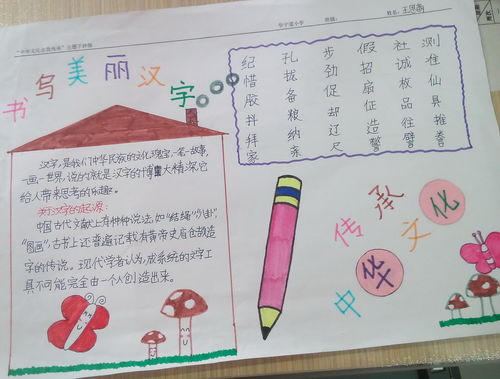 班级:
姓名:
书写美丽汉字
纪 孔 步 假 社 测
惜 拢 劲 招 诚 准
胶 备 促 扇 枚 仙
抖 粮 却 征 品 具
拜 纳 辽 造 往
家 亲 尺
汉字,是我们中华民族的文化瑰宝,一笔一故事,
一画一世界,说的就是汉字的博大精深它
给人带来思考的乐趣。
关于汉字的起源:
中国古代文献上有种种说法,如"结绳""八卦",
"图画",古书上还普遍记载有黄帝史官仓颉造
字的传说。现代学者认为,成系统的文字工
具不可能完全由一个人创造出来。
传承
中华文化